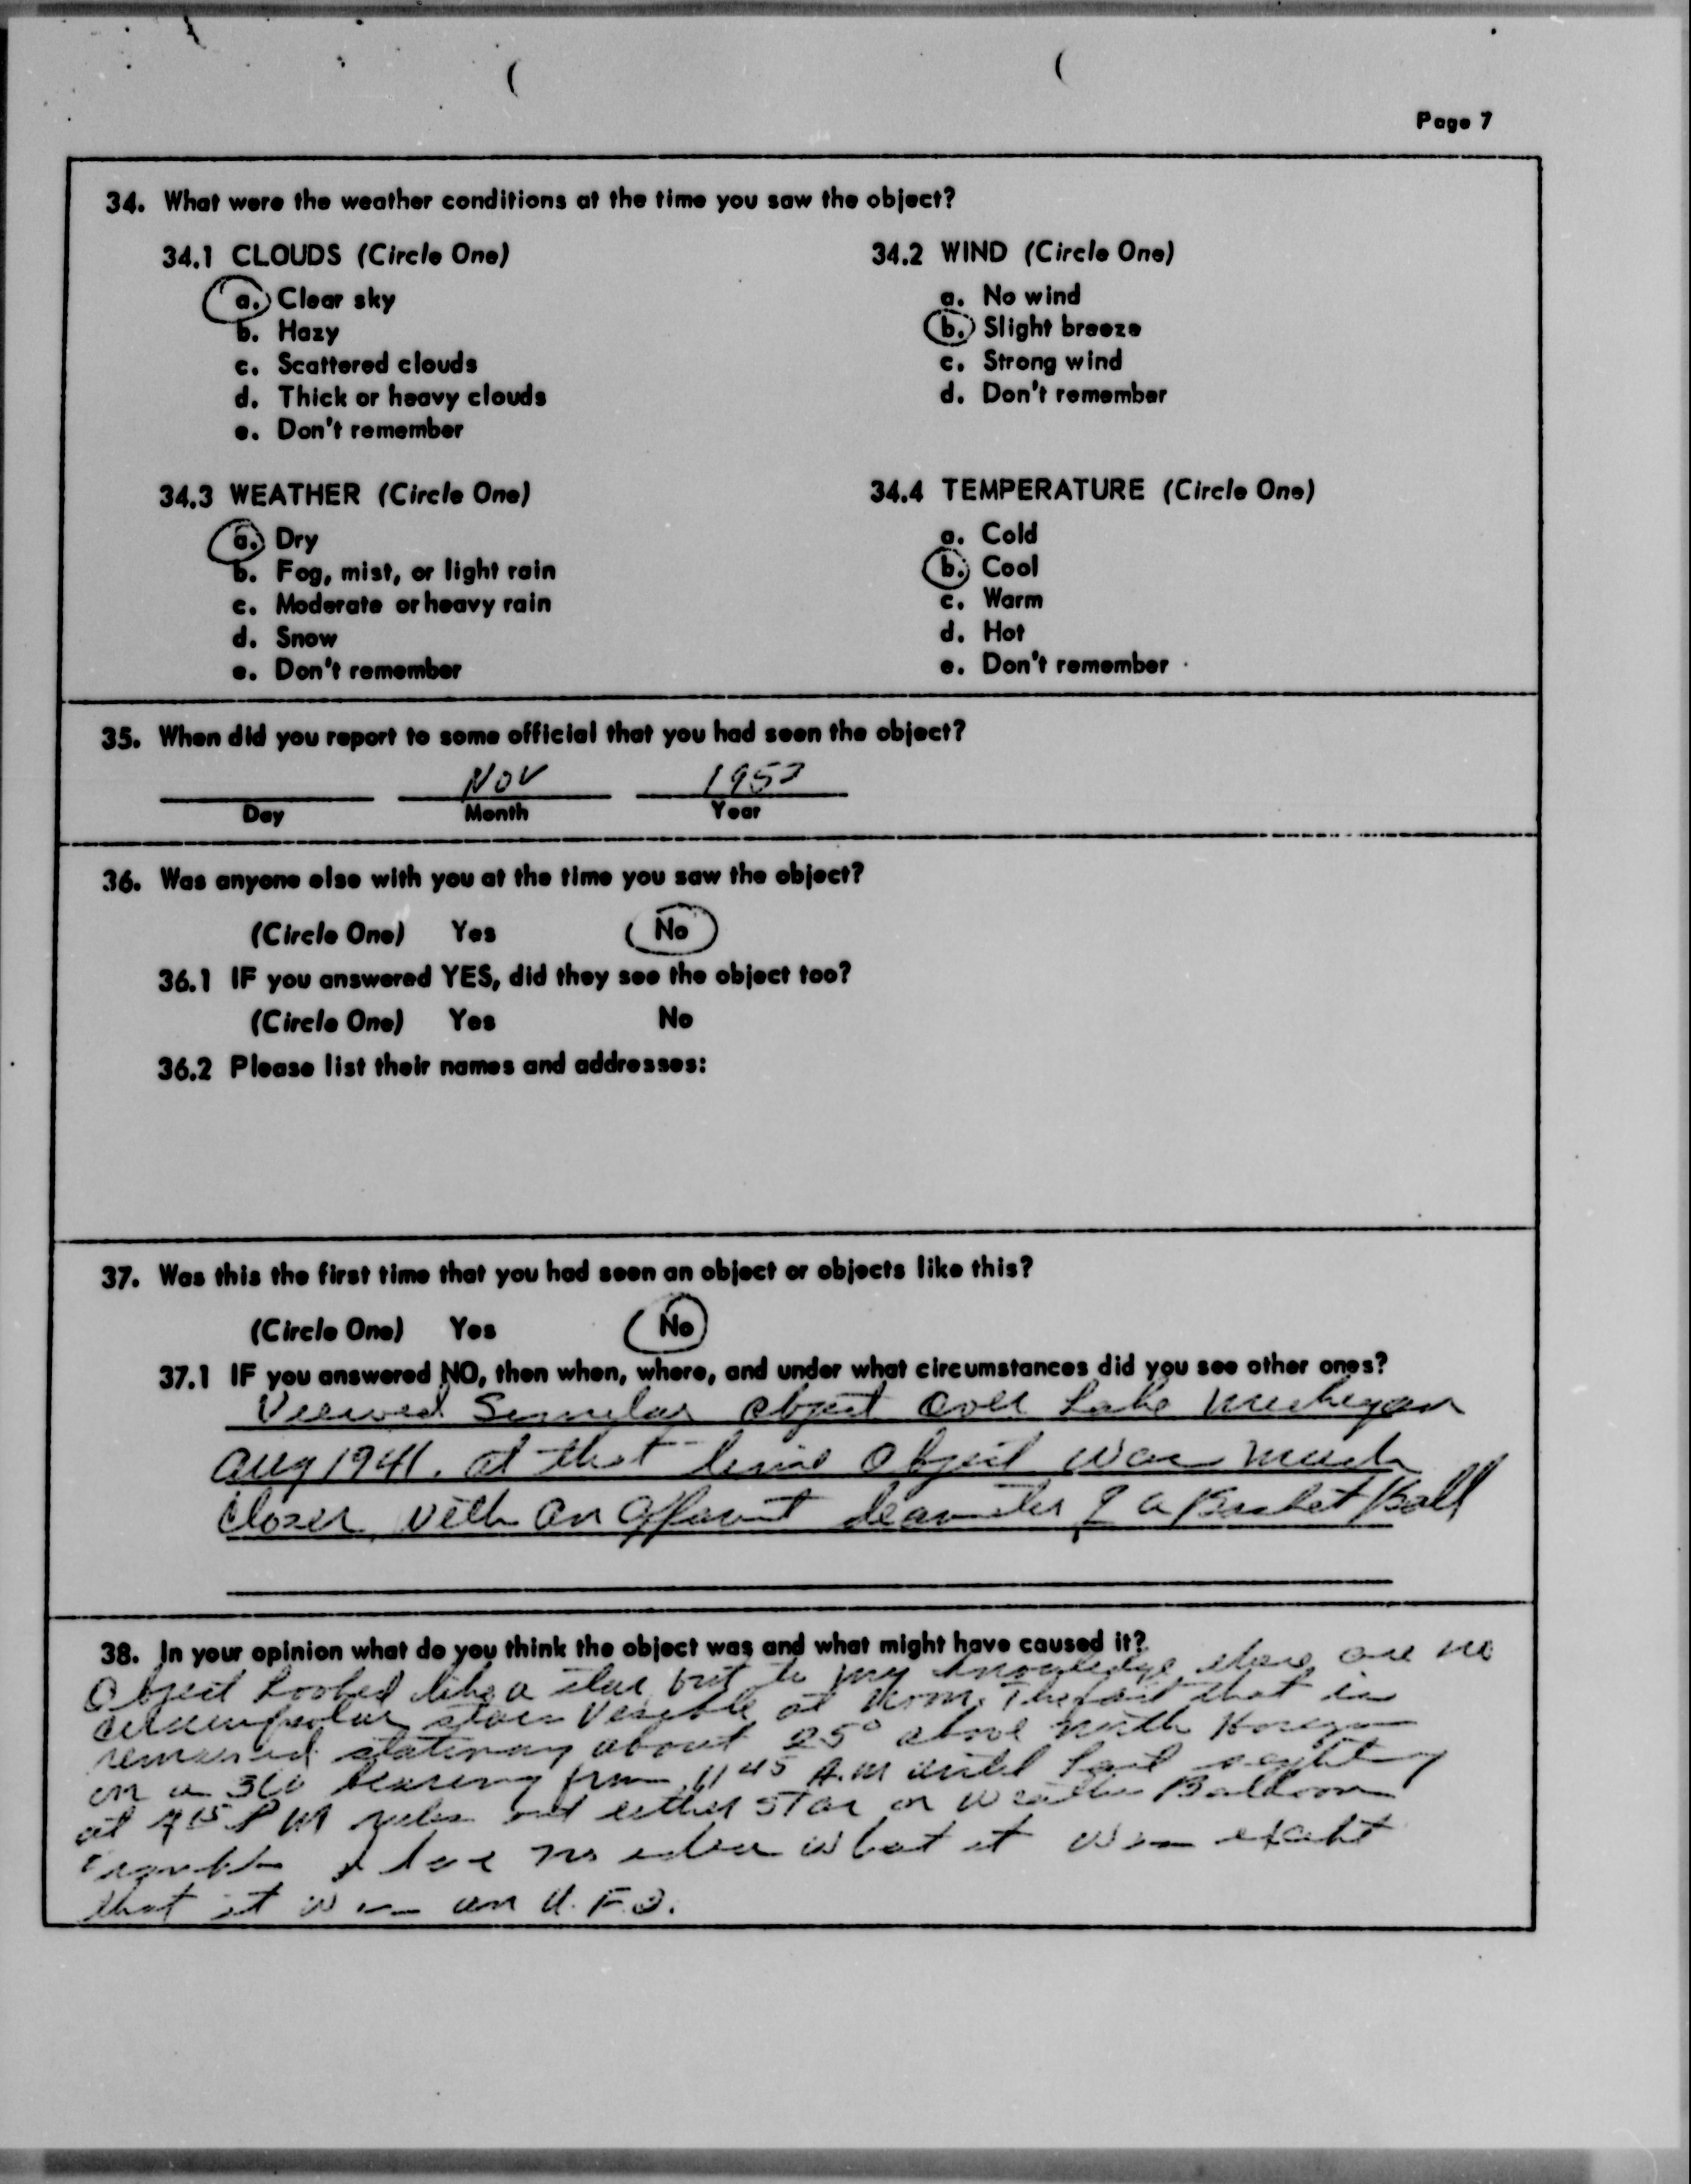 Page 7
34. What were the weather conditions at the time you saw the object?
34.1 CLOUDS (Circle One)
a. Clear sky
b. Hazy
c. Scattered clouds
d. Thick or heavy clouds
e. Don't remember
34.2 WIND (Circle One)
a. No wind
b. Slight breeze
c. Strong wind
d. Don't remember
34.3 WEATHER (Circle One)
a. Dry
b. Fog, mist, or light rain
c. Moderate or heavy rain
d. Snow
e. Don't remember
34.4 TEMPERATURE (Circle One)
a. Cold
b. Cool
c. Warm
d. Hot
e. Don't remember
35. When did you report to some official that you had seen the object?
Nov 195
Day Month Year
36. Was anyone else with you at the time you saw the object?
(Circle One) Yes No
36.1 IF you answered YES, did they see the object too?
(Circle One) Yes No
36.2 Please list their names and addresses:
37. Was this the first time that you had seen an object or objects like this?
(Circle One) Yes No
37.1 IF you answered NO, then when, where, and under what circumstances did you see other ones?
Viewed Similar object over Lake
Aug 1941. at that time Object was much
closer, with an of a Basket Ball
38. In your opinion what do you think the object was and what might have caused it?
Object looked like a star, but to my knowledge there are no
stars Visible at noon. The fact that it
remained stationary about 25° above north Horizon
on a 360 bearing from 1145 A.M until last sighting
at 415 PM rules out either star or weather Balloon
I have no idea what it was except
that it was an U.F.O.